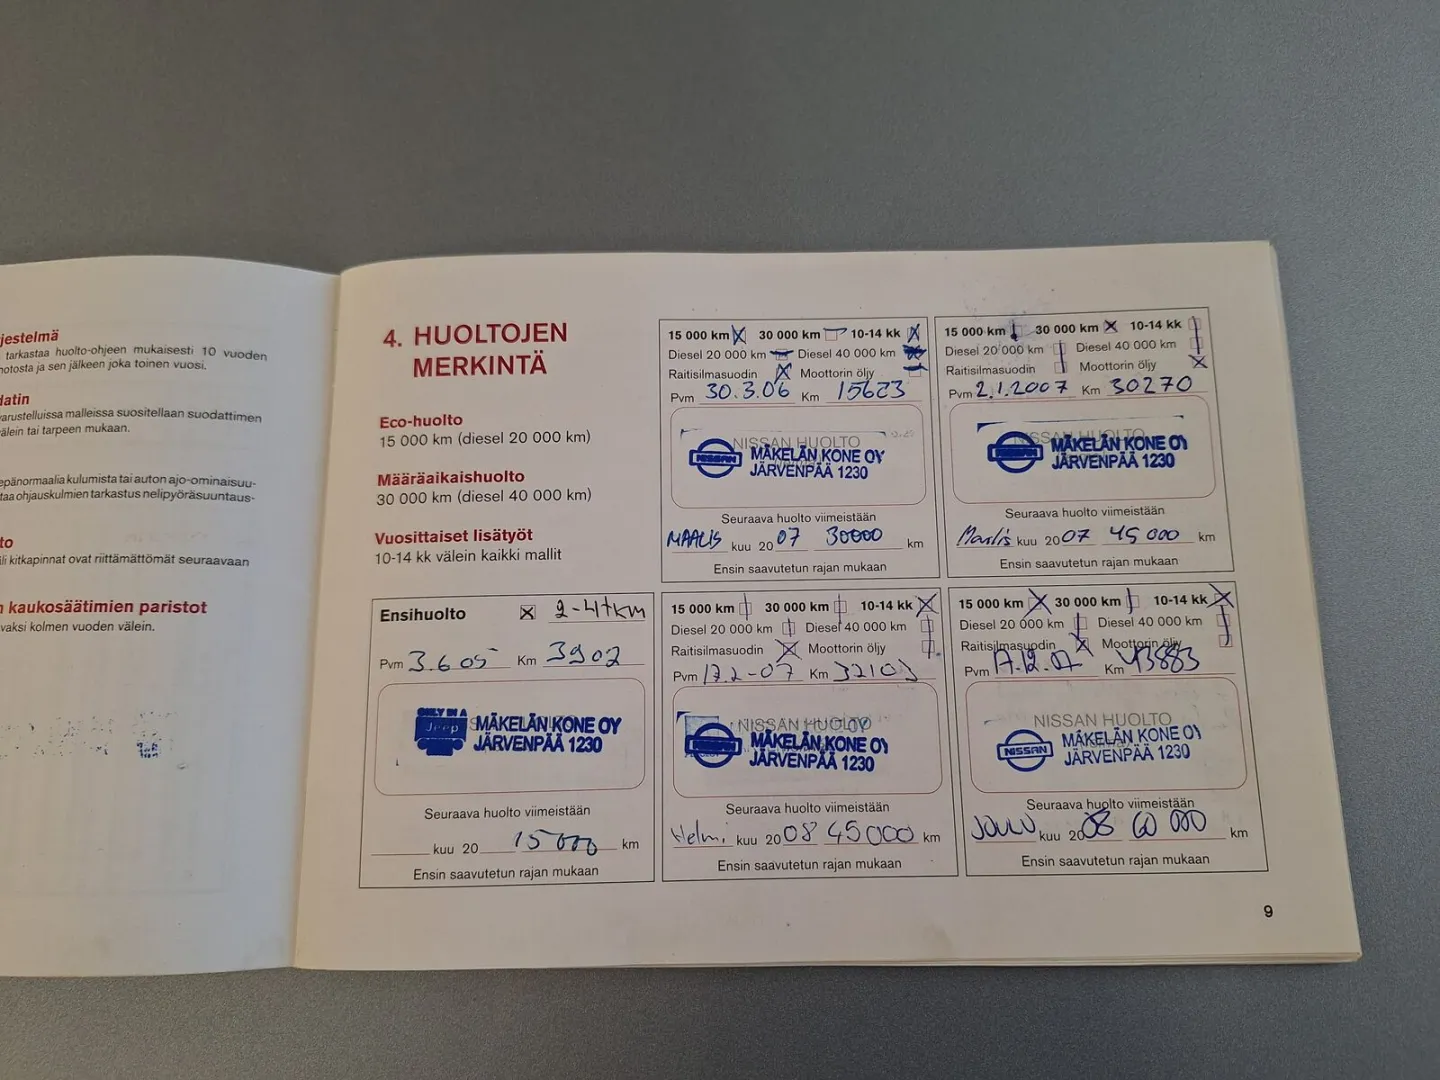 jestelmä
tarkastaa huolto-ohjeen mukaisesti 10 vuoden
notosta ja sen jälkeen joka toinen vuosi.
datin
varustelluissa malleissa suositellaan suodattimen
välein tai tarpeen mukaan.
epänormaalia kulumista tai auton ajo-ominaisuu-
taa ohjauskulmien tarkastus nelipyöräsuuntaus-
to
li kitkapinnat ovat riittämättömät seuraavaan
n kaukosäätimien paristot
vaksi kolmen vuoden välein.
4. HUOLTOJEN
MERKINTÄ
Eco-huolto
15 000 km (diesel 20 000 km)
Määräaikaishuolto
30 000 km (diesel 40 000 km)
Vuosittaiset lisätyöt
10-14 kk välein kaikki mallit
15 000 km 30 000 km 10-14 kk
Diesel 20 000 km Diesel 40 000 km
Raitisilmasuodin Moottorin öljy
Pvm 30.3.06 Km 15623
NISSAN HUOLTO
NISSAN MÄKELÄN KONE OY
JÄRVENPÄÄ 1230
Seuraava huolto viimeistään
MAALIS kuu 2007 30000 km
Ensin saavutetun rajan mukaan
15 000 km 30 000 km 10-14 kk
Diesel 20 000 km Diesel 40 000 km
Raitisilmasuodin Moottorin öljy
Pvm 2.1.2007 Km 30270
NISSAN MÄKELÄN KONE OY
JÄRVENPÄÄ 1230
Seuraava huolto viimeistään
Maalis kuu 2007 45 000 km
Ensin saavutetun rajan mukaan
Ensihuolto 2-4tkm
Pvm 3.6 05 Km 3902
ONLY IN A
Jeep MÄKELÄN KONE OY
JÄRVENPÄÄ 1230
Seuraava huolto viimeistään
kuu 20 15000 km
Ensin saavutetun rajan mukaan
15 000 km 30 000 km 10-14 kk
Diesel 20 000 km Diesel 40 000 km
Raitisilmasuodin Moottorin öljy
Pvm 17.2-07 Km 32103
NISSAN HUOLTO
NISSAN MÄKELÄN KONE OY
JÄRVENPÄÄ 1230
Seuraava huolto viimeistään
Helmi kuu 2008 45000 km
Ensin saavutetun rajan mukaan
15 000 km 30 000 km 10-14 kk
Diesel 20 000 km Diesel 40 000 km
Raitisilmasuodin Moottorin öljy
Pvm 17.12.07 Km 43883
NISSAN HUOLTO
NISSAN MÄKELÄN KONE OY
JÄRVENPÄÄ 1230
Seuraava huolto viimeistään
JOULU kuu 2008 60 000 km
Ensin saavutetun rajan mukaan
9